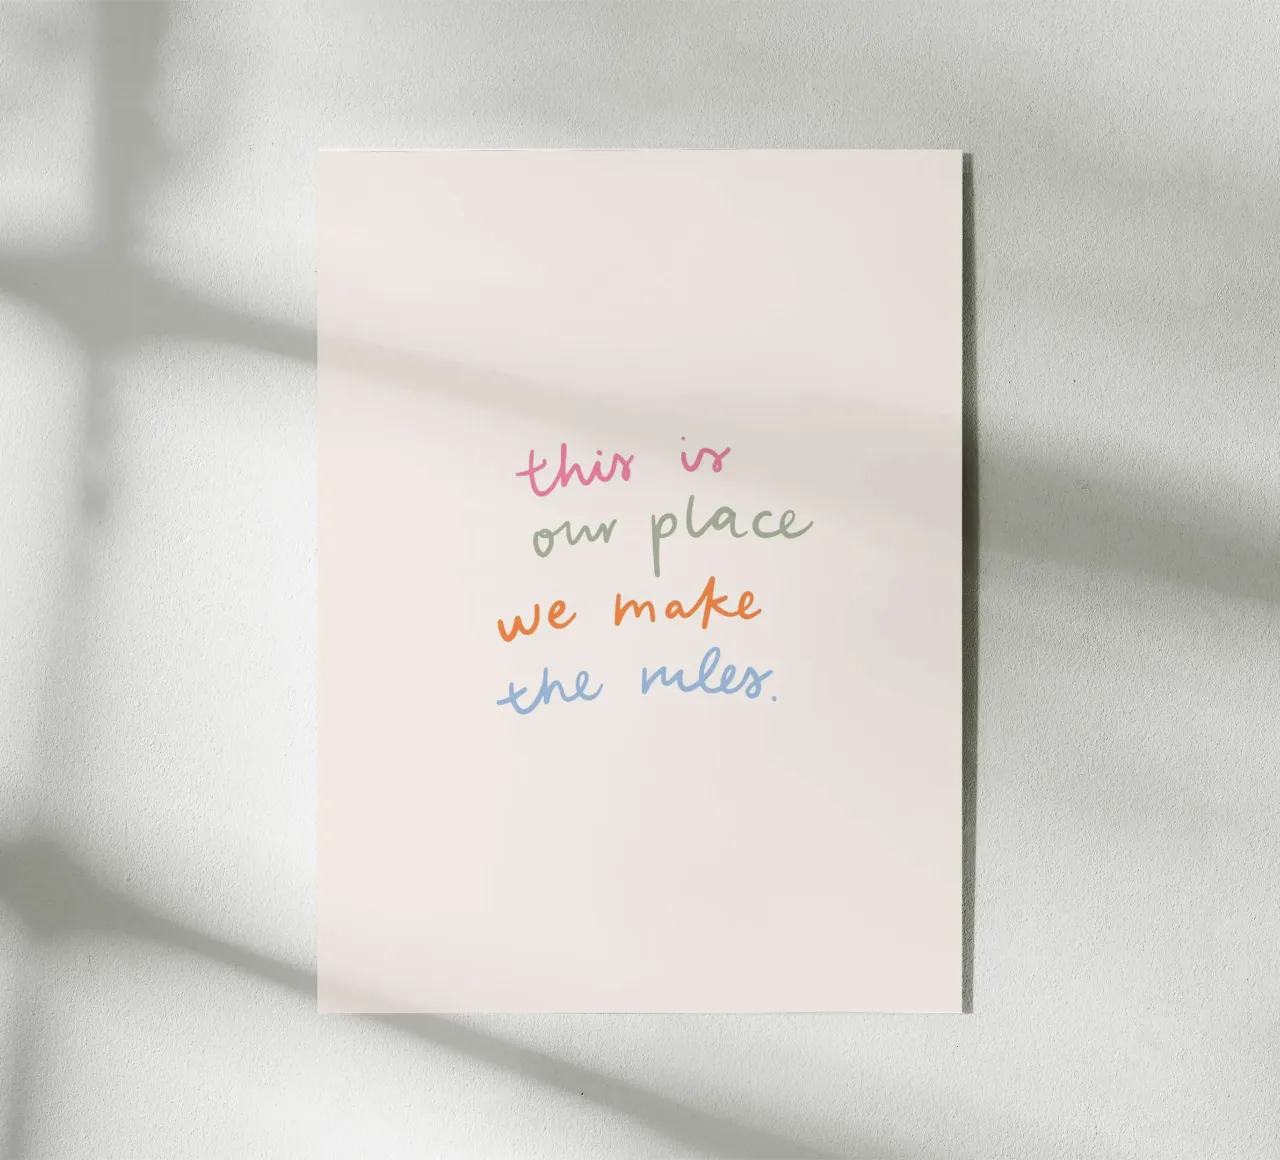 this is
our place
we make
the rules.